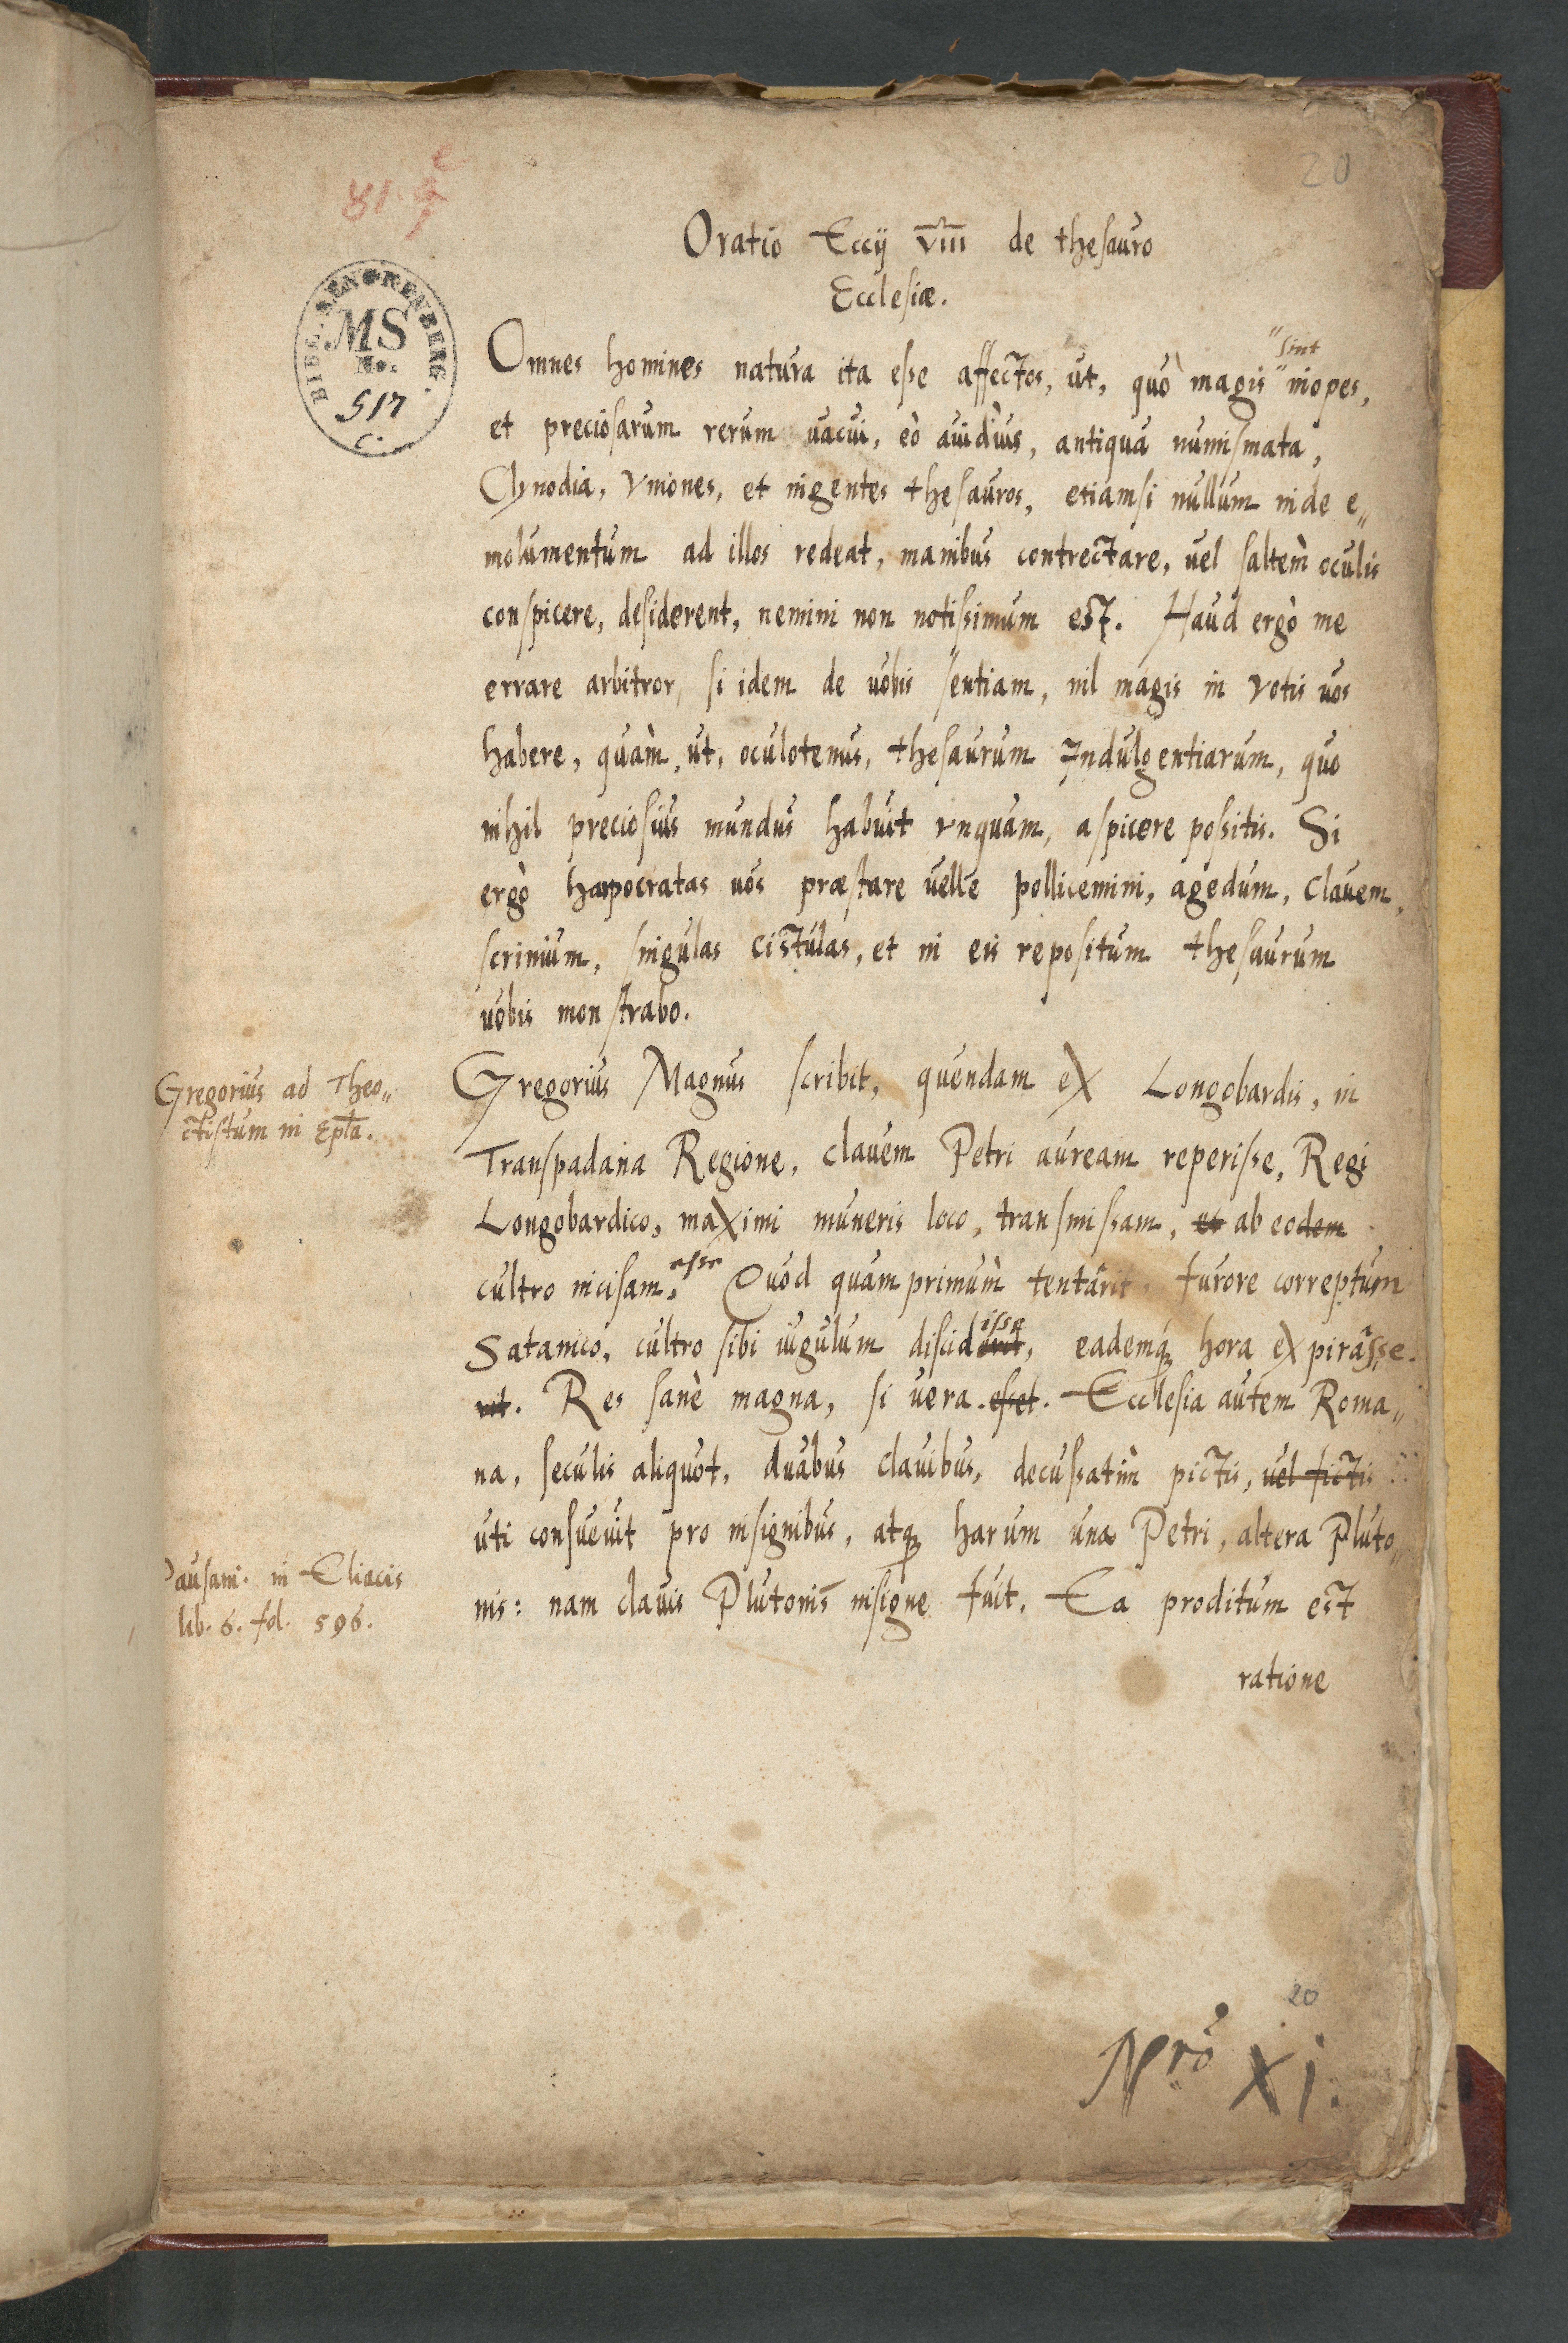 20
81. e
Oratio Eccij VIII de thesauro
Ecclesiæ.
BIBL. SENCKENBERG.
MS
No.
517
C.
sint
Omnes homines natura ita esse affectos, ut, quò magis inopes,
et preciosarum rerum uacui, eò auidius, antiqua numismata,
Clynodia, Vniones, et ingentes thesauros, etiamsi nullum inde e„
molumentum ad illos redeat, manibus contrectare, uel saltem̀ oculis
conspicere, desiderent, nemini non notissimum est. Haud ergò me
errare arbitror, si idem de uobis sentiam, nil magis in votis uos
habere, quam̀, ut, oculotenus, thesaurum Indulgentiarum, quo
nihil preciosius mundus habuit vnquam, aspicere possitis. Si
ergò harpocratas uos præstare uelle pollicemini, agedum, Clauem,
scrinium, singulas cistulas, et in eis repositum thesaurum
uobis monstrabo.
Gregorius ad Theo„
ctistum in Epl̃a.
Gregorius Magnus scribit, quendam ex Longobardis, in
Transpadana Regione, clauem Petri auream reperisse, Regi
Longobardico, maximi muneris loco, transmissam, et ab eodem
cultro incisam, esse Quod quam primum̀ tentârit, furore correptum
Satanico, cultro sibi iugulum discid erit isse, eademq́ hora expirâsse.
rit. Res sanè magna, si uera. esset. Ecclesia autem Roma„
na, seculis aliquot, duabus clauibus, decussatim̀ pictis, uel fictis
uti consueuit pro insignibus, atq́ harum una Petri, altera Pluto„
Pausani. in Eliacis
lib. 6. fol. 596.
nis: nam clauis Plutonis insigne fuit. Ea proditum est
ratione
20
Nrō XI.